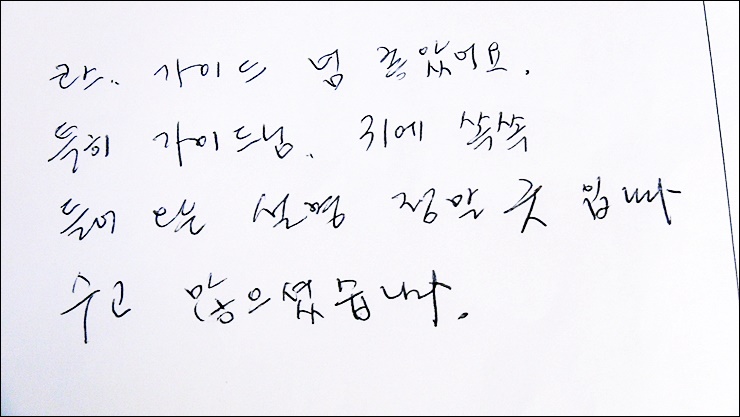 코스. 가이드 넘 좋았어요.
특히 가이드님. 귀에 쏙쏙
들어 오는 설명 정말 굿 입니다
수고 많으셨습니다.